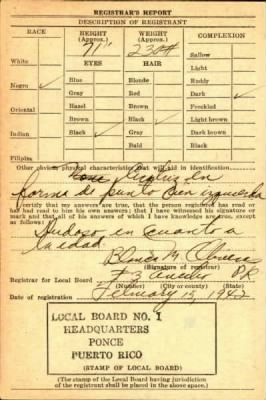 REGISTRAR'S REPORT
DESCRIPTION OF REGISTRANT
RACE HEIGHT (Approx.) WEIGHT (Approx.) COMPLEXION
71" 230#
EYES HAIR
Sallow
White Light
Blue Blonde Ruddy
Negro ✓ Gray Red Dark ✓
Hazel Brown Freckled
Oriental Brown Black ✓ Light brown
Indian Black ✓ Gray Dark brown
Bald Black
Filipino
Other obvious physical characteristics that will aid in identification
forma de punto
I certify that my answers are true; that the person registered has read or
has had read to him his own answers; that I have witnessed his signature or
mark and that all of his answers of which I have knowledge are true, except
as follows:
Dudoso en cuanto a
la edad
(Signature of registrar)
Registrar for Local Board #3 PR
(Number) (City or county) (State)
Date of registration February 15, 1942
LOCAL BOARD NO. 1
HEADQUARTERS
PONCE
PUERTO RICO
(STAMP OF LOCAL BOARD)
(The stamp of the Local Board having jurisdiction
of the registrant shall be placed in the above space.)